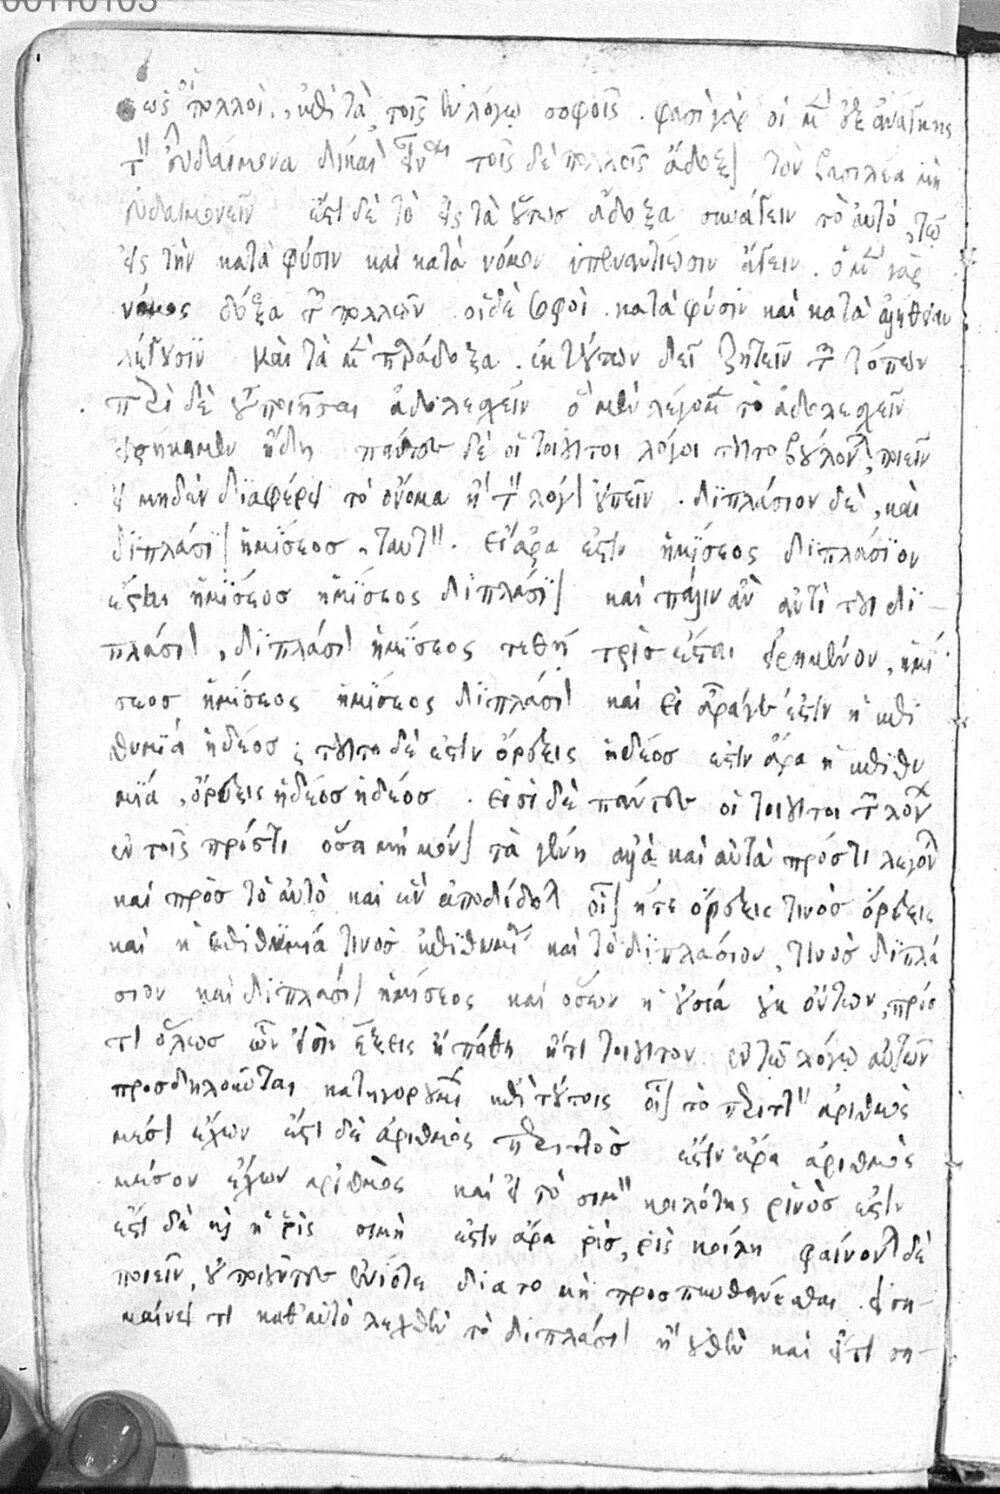 00110103
ὡς οἱ πολλοὶ, ἐπὶ τὰ τοῖς ἐν λόγῳ σοφοῖς. φασὶ γὰρ οἱ μὲν ἐξ ἀνάγκης
τὸν εὐδαίμονα δίκαιον εἶναι τοῖς δὲ πολλοῖς ἄδοξον τὸν βασιλέα μὴ
εὐδαιμονεῖν ἔστι δὲ τὸ εἰς τὰ οὕτως ἄδοξα συνάγειν τὸ αὐτό, τῷ
εἰς τὴν κατὰ φύσιν καὶ κατὰ νόμον ὑπεναντίωσιν ἄγειν. ὁ μὲν γὰρ
νόμος δόξα τῶν πολλῶν οἱ δὲ σοφοὶ κατὰ φύσιν καὶ κατὰ ἀλήθειαν
λέγουσιν καὶ τὰ μὲν παράδοξα ἐκ τούτων δεῖ ζητεῖν τῶν τόπων
περὶ δὲ τοῦ ποιῆσαι ἀδολεσχεῖν ὃ μὲν λέγομεν τὸ ἀδολεσχεῖν
εἰρήκαμεν ἤδη πάντες δὲ οἱ τοιοῦτοι λόγοι τοῦτο βούλονται ποιεῖν
εἰ μηδὲν διαφέρει τὸ ὄνομα ἢ τὸν λόγον εἰπεῖν. διπλάσιον δὲ, καὶ
διπλάσιον ἡμίσεος, ταυτόν. εἰ ἄρα ἐστὶν ἡμίσεος διπλάσιον
ἔσται ἡμίσεος ἡμίσεος διπλάσιον καὶ πάλιν ἂν ἀντὶ τοῦ δι-
πλάσιον, διπλάσιον ἡμίσεος τεθῇ τρὶς ἔσται εἰρημένον, ἡμί
σεος ἡμίσεος ἡμίσεος διπλάσιον καὶ εἰ ἆρά γε ἐστὶν ἡ ἐπι
θυμία ἡδέος; τοῦτο δὲ ἐστὶν ὄρεξις ἡδέος ἐστὶν ἄρα ἡ ἐπιθυ
μία, ὄρεξις ἡδέος ἡδέος. εἰσὶ δὲ πάντες οἱ τοιοῦτοι τῶν λόγων
ἐν τοῖς πρός τι ὅσα μὴ μόνον τὰ γένη ἀλλὰ καὶ αὐτὰ πρός τι λέγονται
καὶ πρὸς τὸ αὐτὸ καὶ ἓν ἀποδίδοται οἷον ἥ τε ὄρεξις τινὸς ὄρεξις
καὶ ἡ ἐπιθυμία τινὸς ἐπιθυμία καὶ τὸ διπλάσιον, τινὸς διπλά
σιον καὶ διπλάσιον ἡμίσεος καὶ ὅσων ἡ οὐσία οὐκ ὄντων, πρός
τι ὅλως ὧν εἰσὶν ἕξεις ἢ πάθη ἤ τι τοιοῦτον ἐν τῷ λόγῳ αὐτῶν
προσδηλοῦται κατηγορουμένων ἐπὶ τούτοις οἷον τὸ περιττὸν ἀριθμὸς
μέσον ἔχων ἔστι δὲ ἀριθμὸς περιττὸς ἔστιν ἄρα ἀριθμὸς
μέσον ἔχων ἀριθμὸς καὶ εἰ τὸ σιμὸν κοιλότης ῥινός ἐστιν
ἔστι δὲ καὶ ἡ ῥὶς σιμὴ ἔστιν ἄρα ῥὶς, ῥὶς κοίλη φαίνονται δὲ
ποιεῖν, οὐ ποιοῦντες ἐνίοτε διὰ τὸ μὴ προσπυνθάνεσθαι εἰ ση-
μαίνει τι καθ' αὑτὸ λεχθὲν τὸ διπλάσιον ἢ οὐθὲν καὶ εἴ τι ση-